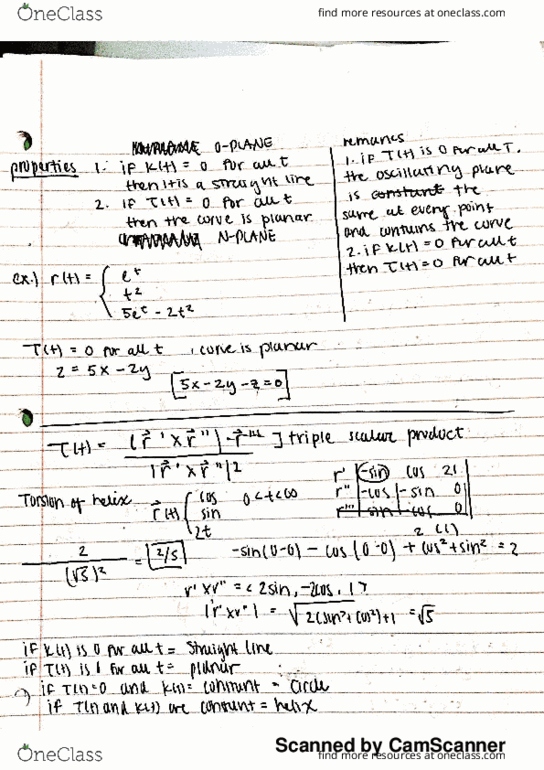 OneClass
find more resources at oneclass.com
O-PLANE
properties 1. if K(t) = 0 for all t
then it is a straight line
2. if T(t) = 0 for all t
then the curve is planar
N-PLANE
remarks
1. if T(t) is 0 for all T.
the oscillating plane
is constant the
same at every point
and contains the curve
2. if K(t) = 0 for all t
then T(t) = 0 for all t
ex.) r(t) = { e^t
t^2
5e^t - 2t^2
T(t) = 0 for all t , curve is planar
z = 5x - 2y
[5x - 2y - z = 0]
T(t) = (r⃗ ' x r⃗ '') · r⃗ ''' ] triple scalar product
|r⃗ ' x r⃗ ''|2
Torsion of helix r⃗(t) { cos
sin
2t
r' | -sin cos 2
r'' | -cos -sin 0
r''' sin -cos 0
2 (1)
2 / (√5)^2 = 2/5
-sin(0-0) - cos(0-0) + cos² + sin² = 2
r' x r'' = < 2sin, -2cos, 1 >
|r' x r''| = √2(sin² + cos²) + 1 = √5
if K(t) is 0 for all t = straight line
if T(t) is for all t = planar
if T(t) = 0 and K(t) = constant = circle
if T(t) and K(t) are constant = helix
Scanned by CamScanner
OneClass
find more resources at oneclass.com